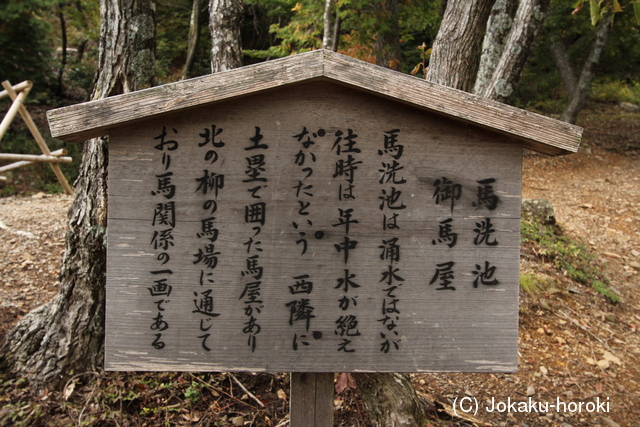 馬洗池
御馬屋
馬洗池は湧水ではないが
往時は年中水が絶え
なかったという。西隣に
土塁で囲った馬屋があり
北の柳の馬場に通じて
おり馬関係の一画である
(C)Jokaku-horoki